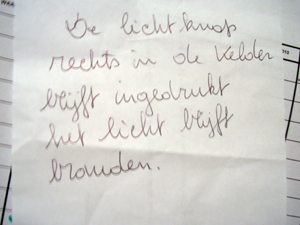 De lichtknop
rechts in de kelder
blijft ingedrukt
het licht blijft
branden.